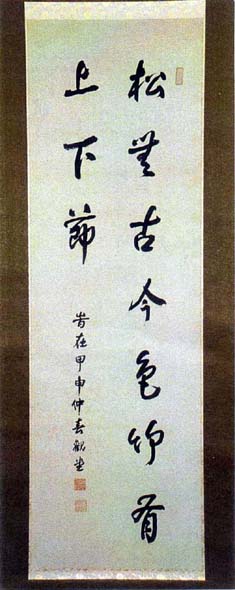 松無古今色竹有
上下節
昔在甲申仲春